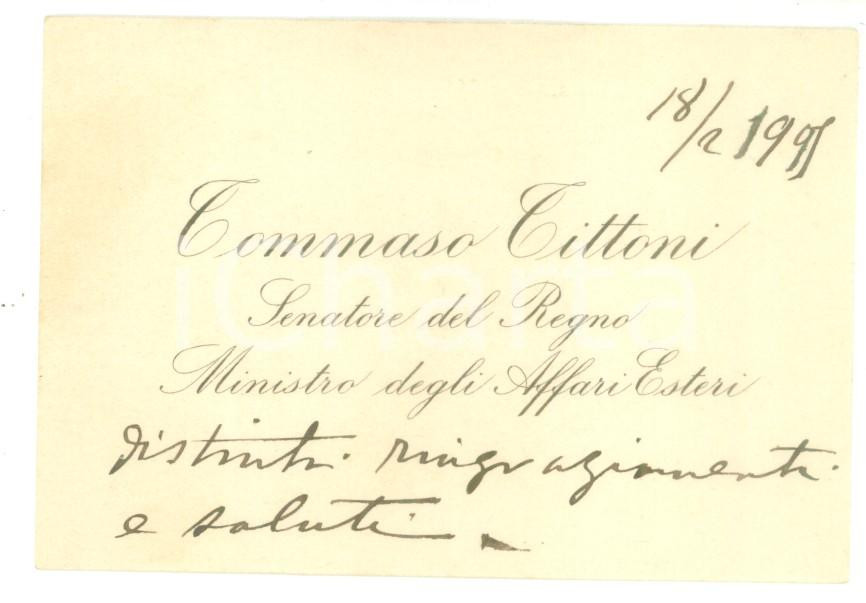 18/2 190
Tommaso Tittoni
Senatore del Regno
Ministro degli Affari Esteri
distinti ringraziamenti
e saluti
iCharta